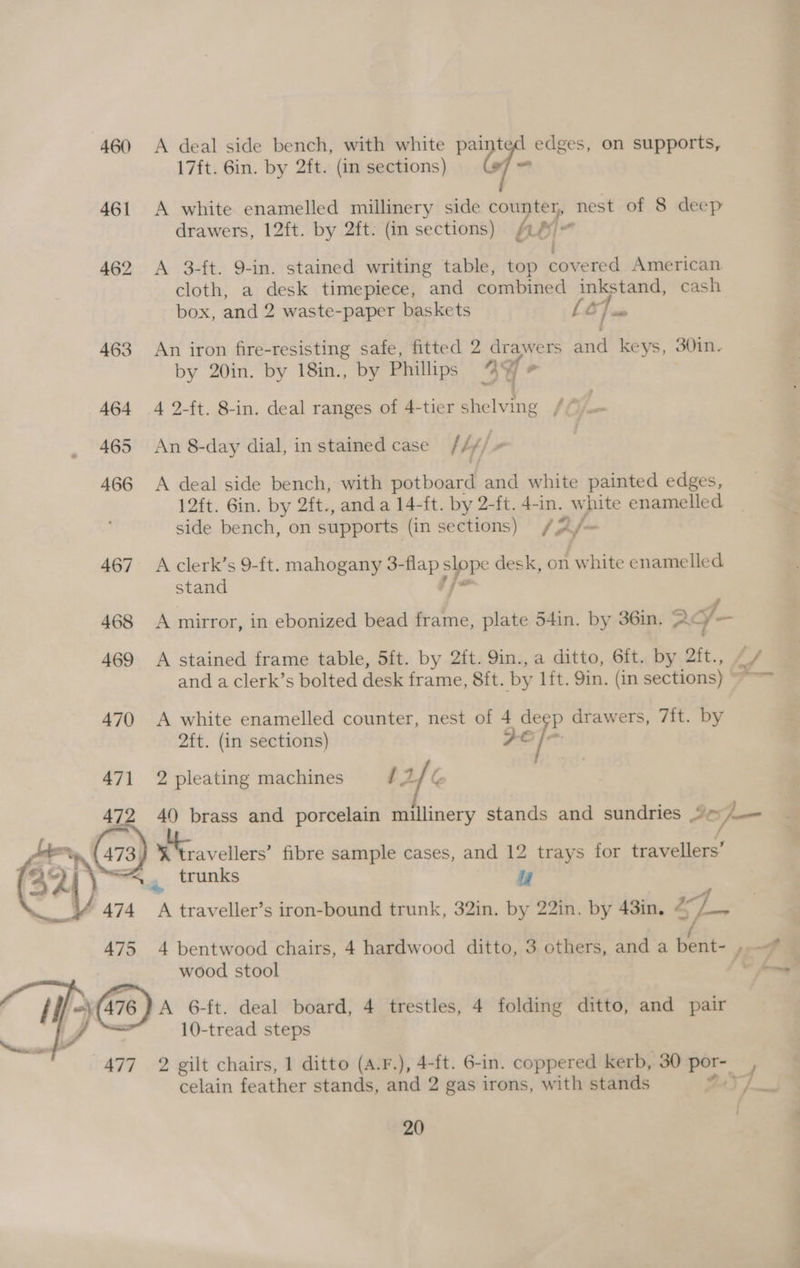 460 A deal side bench, with white painted edges, on supports,
17ft. 6in. by 2ft. (in sections)
461 A white enamelled millinery side counter, nest of 8 deep
drawers, 12ft. by 2ft. (in sections)
462 A 3-ft. 9-in. stained writing table, top covered American
cloth, a desk timepiece, and combined inkstand, cash
box, and 2 waste-paper baskets
463 An iron fire-resisting safe, fitted 2 drawers and keys, 30in.
by 20in. by 18in., by Phillips
464 4 2-ft. 8-in. deal ranges of 4-tier shelving
465 An 8-day dial, in stained case 14/-
466 A deal side bench, with potboard and white painted edges,
12ft. 6in. by 2ft., and a 14-ft. by 2-ft. 4-in. white enamelled
side bench, on supports (in sections) 12/-
467 A clerk's 9-ft. mahogany 3-flap slope desk, on white enamelled
stand
468 A mirror, in ebonized bead frame, plate 54in. by 36in.
469 A stained frame table, 5ft. by 2ft. 9in., a ditto, 6ft. by 2ft.,
and a clerk's bolted desk frame, 8ft. by 1ft. 9in. (in sections)
470 A white enamelled counter, nest of 4 deep drawers, 7ft. by
2ft. (in sections)
471 2 pleating machines 12/6
472 40 brass and porcelain millinery stands and sundries
473 travellers' fibre sample cases, and 12 trays for travellers'
trunks
474 A traveller's iron-bound trunk, 32in. by 22in. by 43in.
475 4 bentwood chairs, 4 hardwood ditto, 3 others, and a bent-
wood stool
476 A 6-ft. deal board, 4 trestles, 4 folding ditto, and pair
10-tread steps
477 2 gilt chairs, 1 ditto (A.F.), 4-ft. 6-in. coppered kerb, 30 por-
celain feather stands, and 2 gas irons, with stands
20